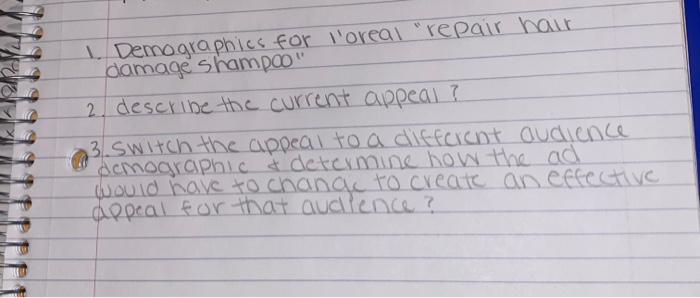 1. Demographics for l'oreal "repair hair
damage shampoo"
2. describe the current appeal?
3. switch the appeal to a different audience
demographic & determine how the ad
would have to change to create an effective
appeal for that audience?